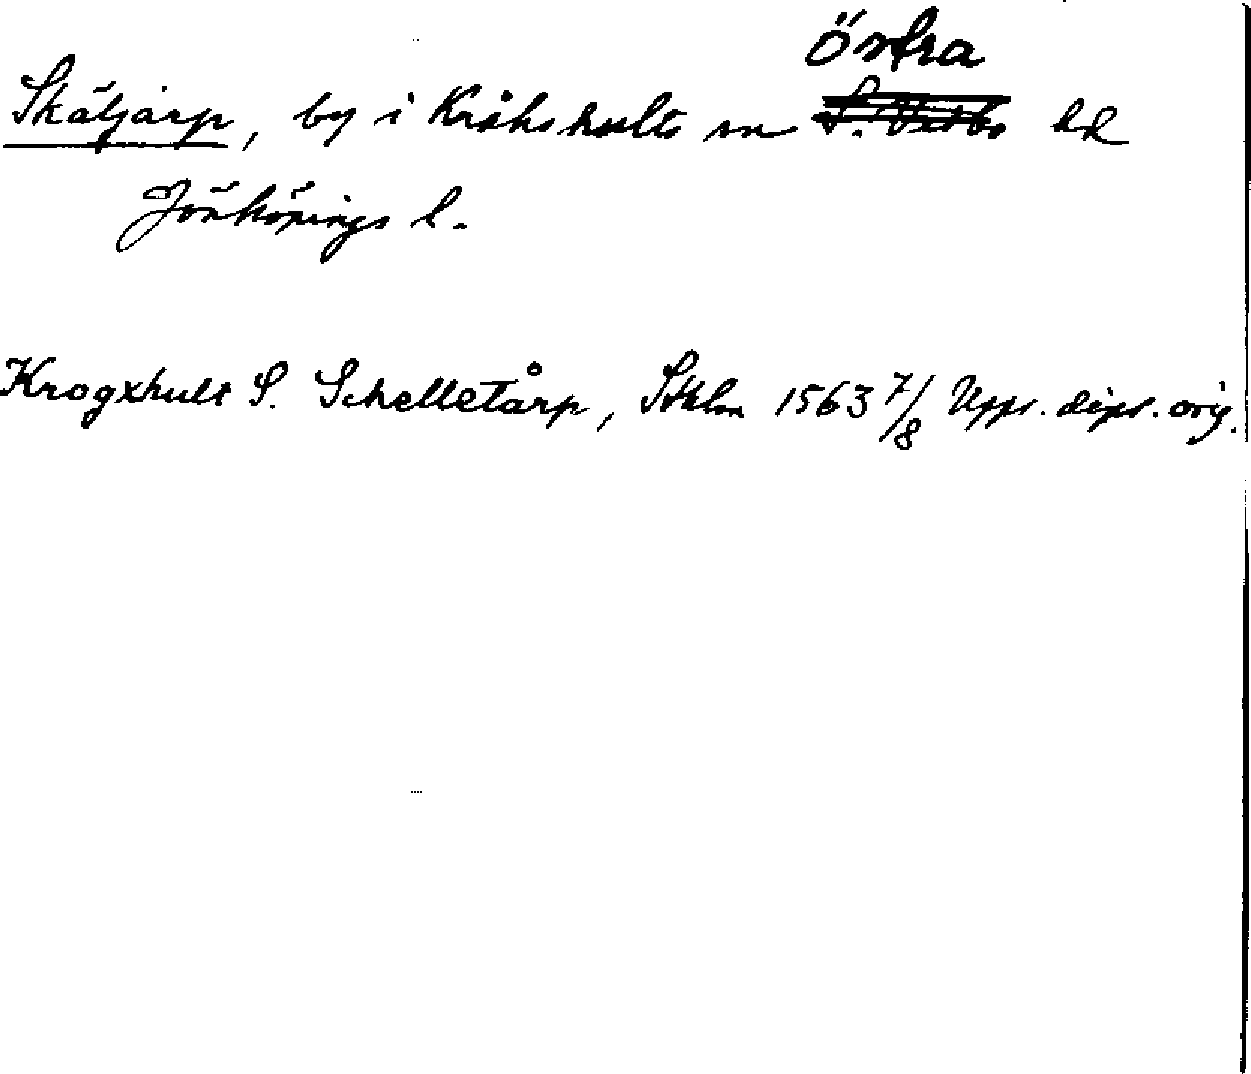 Östra
Skäljarp, by i Kråkshults sn S. Vedbo hd
Jönköpings l.
Krogxhult S. Schelletårp, Sthlm 1563 7/8 Upps. dipl. orig.